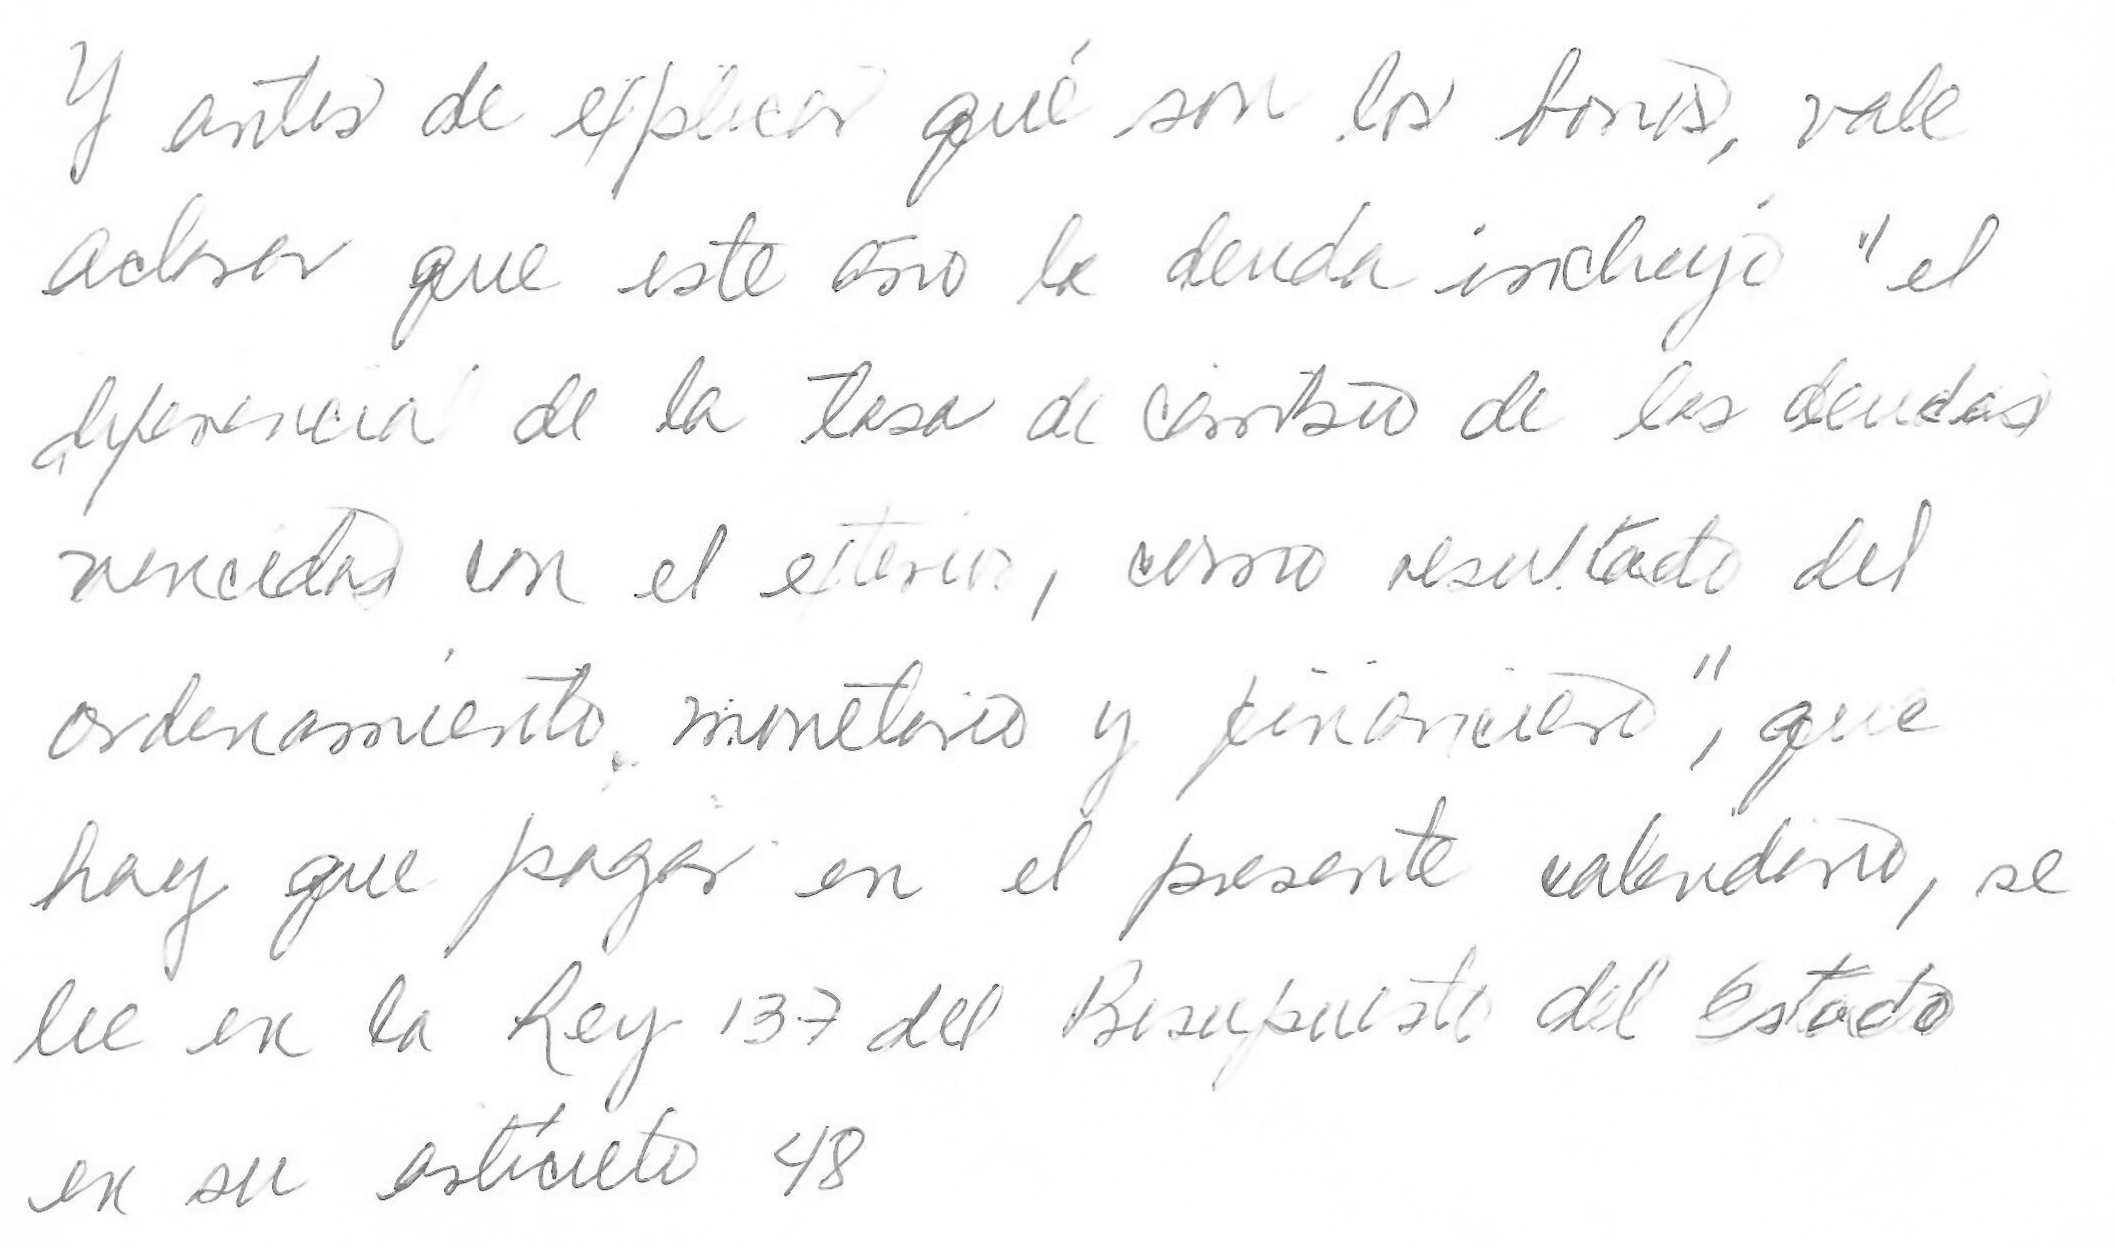 Y antes de explicar qué son los bonos, vale
aclarar que este año la deuda incluyó "el
diferencial de la tasa de cambio de las deudas
vencidas con el exterior, como resultado del
ordenamiento, monetario y financiero", que
hay que pagar en el presente calendario, se
lee en la Ley 137 del Presupuesto del Estado
en su artículo 48